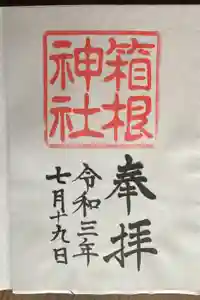 箱根
神社
奉拝
令和三年
七月十九日